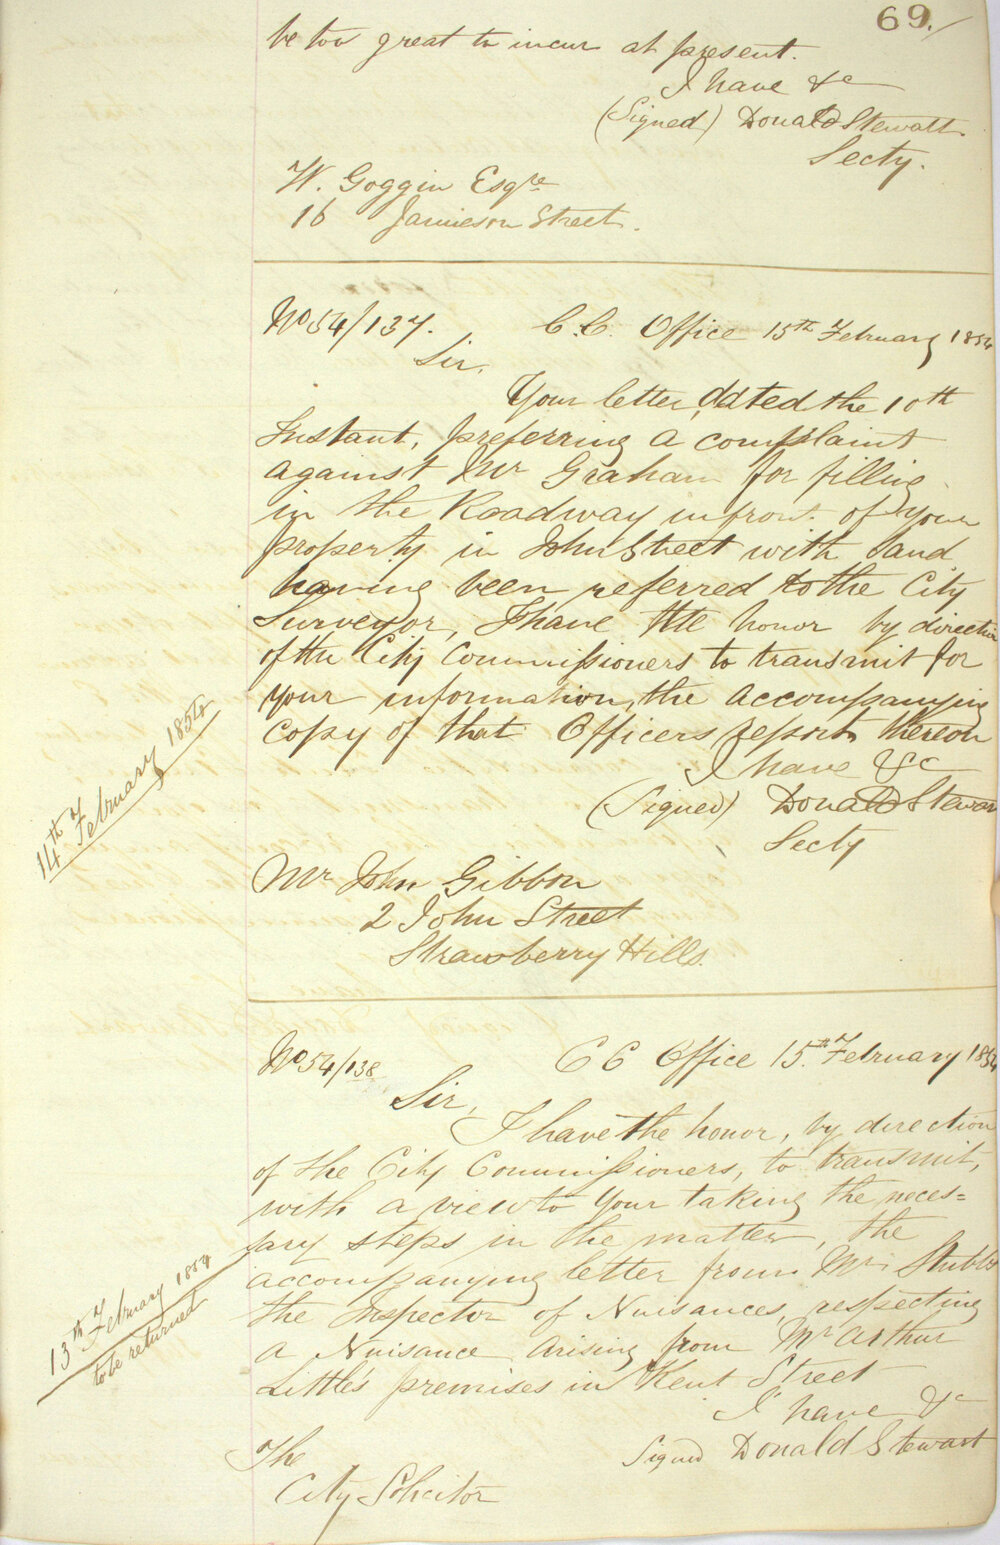 69.
be too great to incur at present.
I have &c
(Signed) Donald Stewart
Secty.
W. Goggin Esqre
16 Jamieson Street.
No 54/137. C.C. Office 15th February 1854
Sir,
Your letter, dated the 10th
Instant, preferring a complaint
against Mr Graham for filling
in the Roadway in front of your
property in John Street with sand
having been referred to the City
Surveyor, I have the honor by direction
of the City Commissioners to transmit for
your information, the accompanying
copy of that Officers report thereon
I have &c
(Signed) Donald Stewar
Secty
14th February 1854
Mr John Gibbon
2 John Street
Strawberry Hills.
No 54/138 C C Office 15th February 1854
Sir,
I have the honor, by direction
of the City Commissioners, to transmit,
with a view to your taking the neces=
sary steps in the matter, the
accompanying letter from Mr Stubbs
the Inspector of Nuisances, respecting
a Nuisance arising from Mr Arthur
Little's premises in Kent Street
I have &c
Signed Donald Stewart
13th February 1854
to be returned
The
City Solicitor